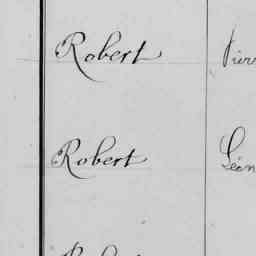 Robert
Robert Léon